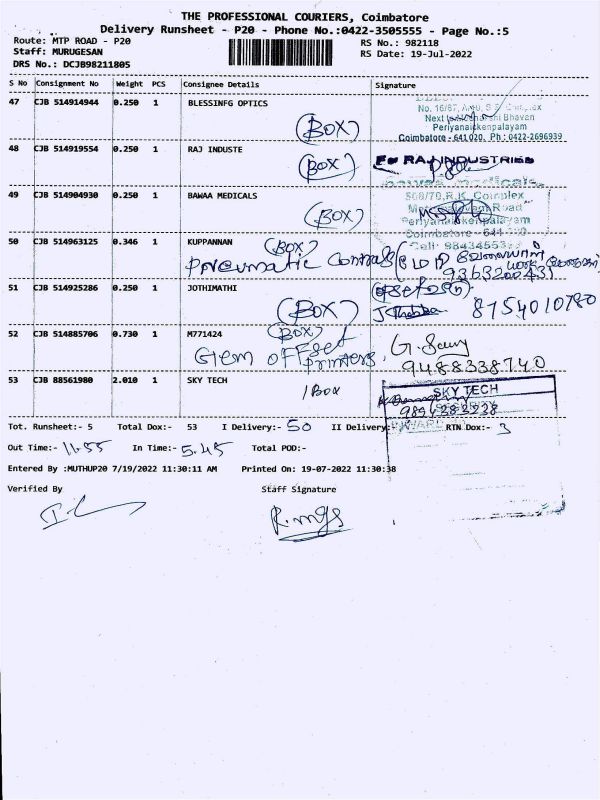 THE PROFESSIONAL COURIERS, Coimbatore
Delivery Runsheet - P20 - Phone No.:0422-3505555 - Page No.:5
Route: MTP ROAD - P20
RS No.: 982118
Staff: MURUGESAN
RS Date: 19-Jul-2022
DRS No.: DCJB98211805
S No Consignment No Weight PCS Consignee Details Signature
47 CJB 514914944 0.250 1 BLESSINFG OPTICS
(BOX)
No. 16/87,
Bhavan
Periyanaickenpalayam
Coimbatore - 641 020. Ph : 0422-2696939
48 CJB 514919554 0.250 1 RAJ INDUSTE
(BOX)
For RAJ INDUSTRIES
49 CJB 514904930 0.250 1 BAWAA MEDICALS
(BOX)
R.K. Complex
Road
Periyanaickenpalayam
Coimbatore - 641
50 CJB 514963125 0.346 1 KUPPANNAN
(BOX)
Pneumatic Controls
9363200431
51 CJB 514925286 0.250 1 JOTHIMATHI
(BOX)
8754010780
52 CJB 514885706 0.730 1 M771424
(BOX)
Gem offset printers.
9488338740
53 CJB 88561980 2.010 1 SKY TECH
1 Box
SKY TECH
Tot. Runsheet:- 5 Total Dox:- 53 I Delivery:- 50 II Delivery: RTN Dox:- 3
Out Time:- 11.55 In Time:- 5.45 Total POD:-
Entered By :MUTHUP20 7/19/2022 11:30:11 AM Printed On: 19-07-2022 11:30:38
Verified By Staff Signature